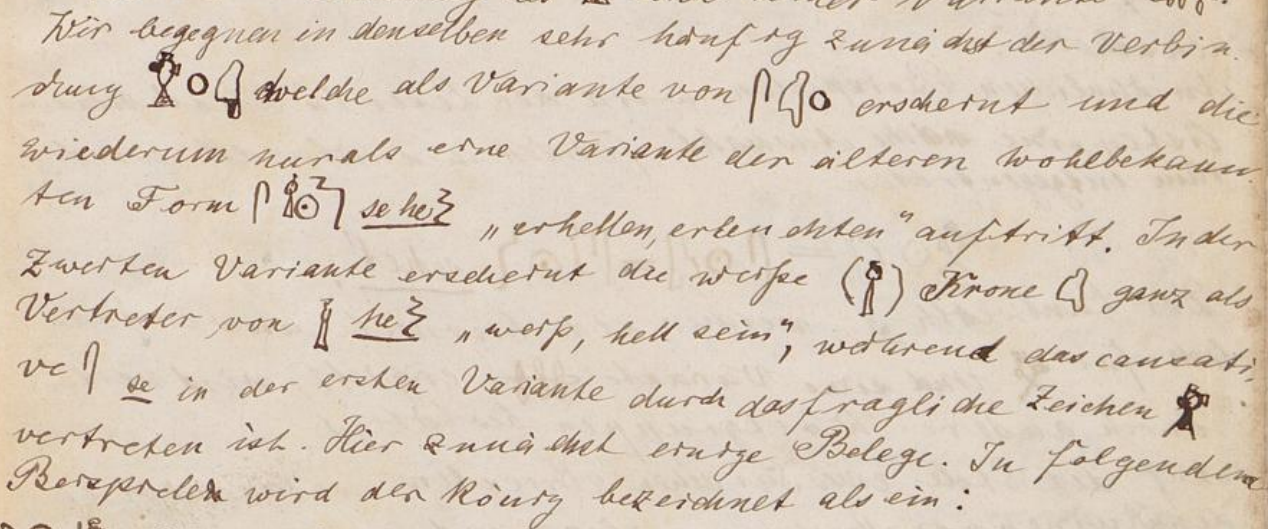 Wir begegnen in denselben sehr häufig zunächst der Verbin-
dung welche als Variante von erscheint und die
wiederum nur als eine Variante der älteren wohlbekann-
ten Form seheʒ „erhellen, erleuchten“ auftritt. In der
zweiten Variante erscheint die weiße ( ) Krone ganz als
Vertreter von heʒ „weiß, hell sein“, während das causati-
ve se in der ersten Variante durch das fragliche Zeichen
vertreten ist. Hier zunächst einige Belege. In folgenden
Beispielen wird der König bezeichnet als ein: